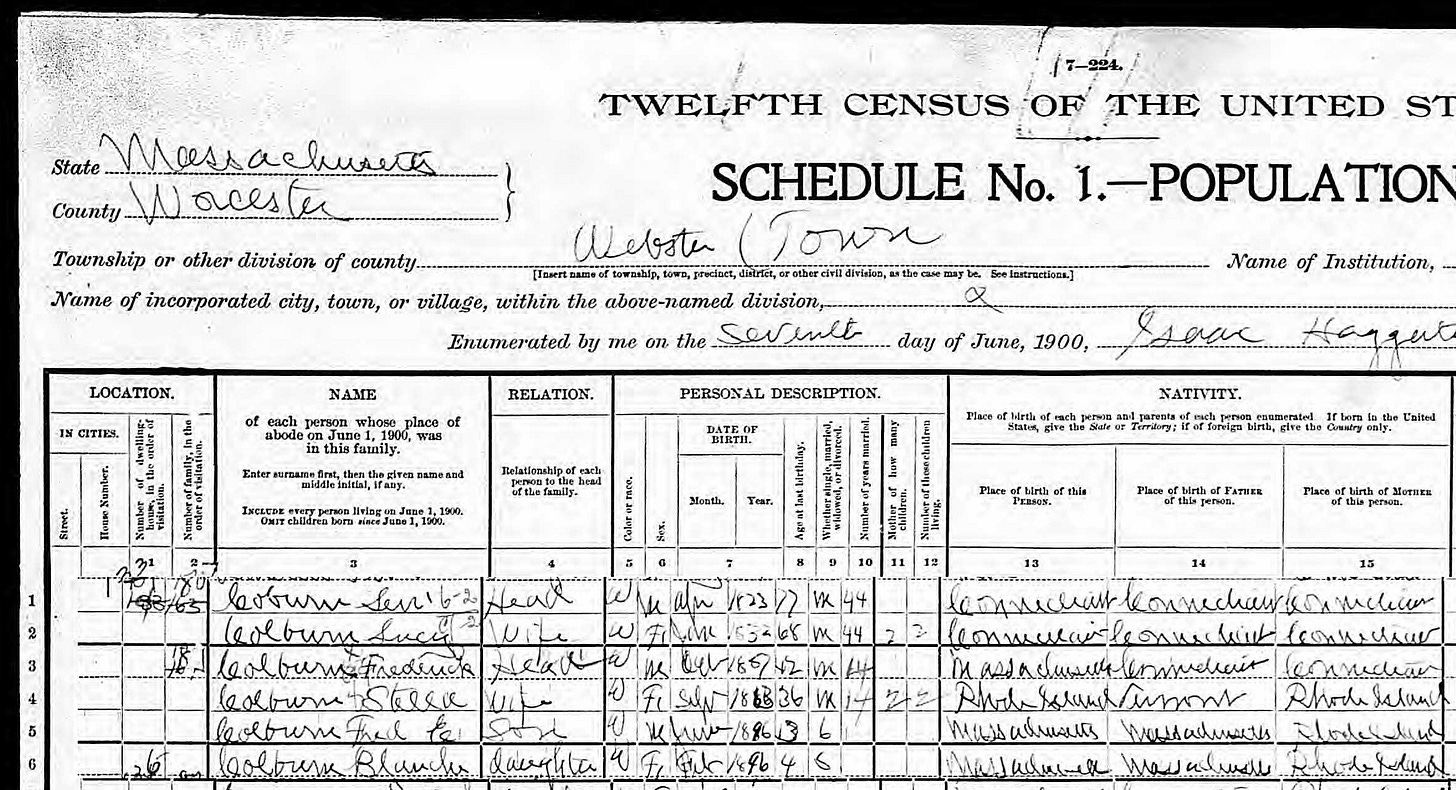 7—224.
TWELFTH CENSUS OF THE UNITED ST
State Massachusetts
SCHEDULE No. 1.—POPULATION
County Worcester
Webster (Town
Township or other division of county
[Insert name of township, town, precinct, district, or other civil division, as the case may be. See instructions.]
Name of Institution,
Name of incorporated city, town, or village, within the above-named division,
Enumerated by me on the Seventh day of June, 1900, Isaac
LOCATION.
IN CITIES.
Street.
House Number.
Number of dwelling-house, in the order of visitation.
Number of family, in the order of visitation.
NAME
of each person whose place of
abode on June 1, 1900, was
in this family.
Enter surname first, then the given name and
middle initial, if any.
INCLUDE every person living on June 1, 1900.
OMIT children born since June 1, 1900.
RELATION.
Relationship of each
person to the head
of the family.
PERSONAL DESCRIPTION.
Color or race.
Sex.
DATE OF
BIRTH.
Month.
Year.
Age at last birthday.
Whether single, married,
widowed, or divorced.
Number of years married.
Mother of how many
children.
Number of these children
living.
NATIVITY.
Place of birth of each person and parents of each person enumerated. If born in the United
States, give the State or Territory; if of foreign birth, give the Country only.
Place of birth of this
PERSON.
Place of birth of FATHER
of this person.
Place of birth of MOTHER
of this person.
1 2 3 4 5 6 7 8 9 10 11 12 13 14 15
1 Coburn Head W M Apr 1823 77 M 44 Connecticut Connecticut Connecticut
2 Colburn Lucy Wife W F 1832 68 M 44 2 2 Connecticut Connecticut Connecticut
3 Colburn Frederick Head W M 42 M 14 Massachusetts Connecticut Connecticut
4 Colburn Stella Wife W F Sep 1863 36 M 14 2 2 Rhode Island Vermont Rhode Island
5 Colburn Fred Son W M 1886 13 Massachusetts Massachusetts Rhode Island
6 Colburn Blanche daughter W F Feb 1896 4 S Massachusetts Massachusetts Rhode Island